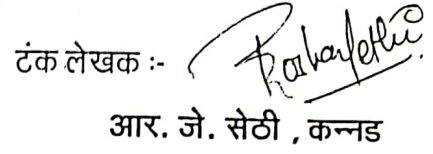 टंक लेखक :-
आर. जे. सेठी , कन्नड